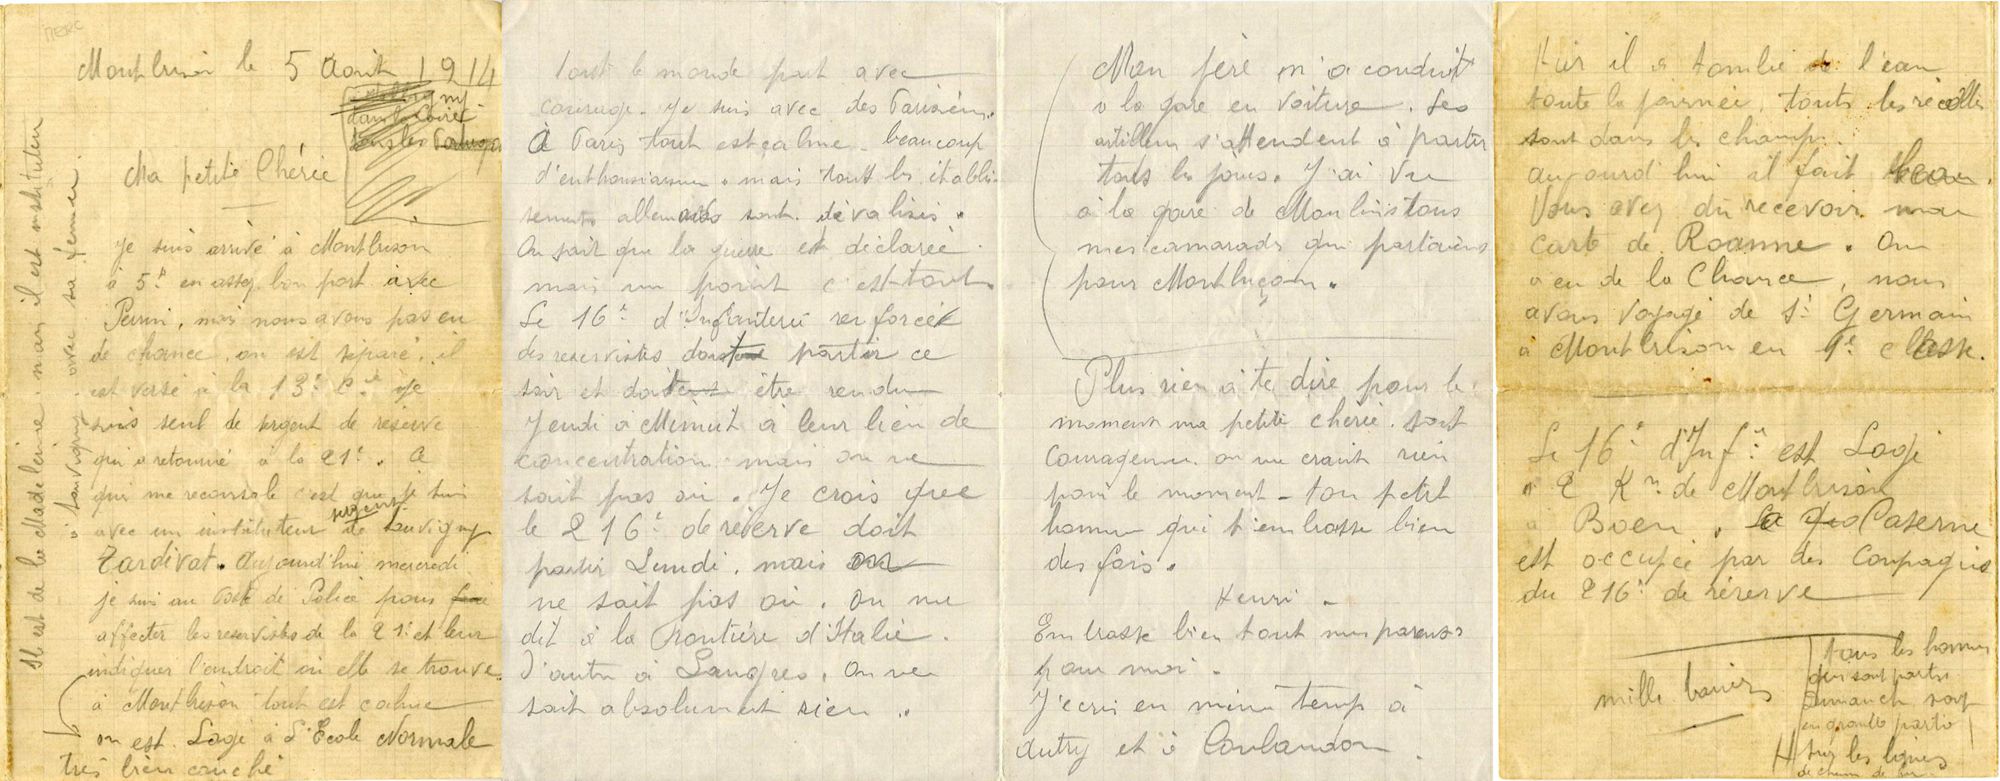 MERC
Montbrison le 5 Août 1914
dans la Loire
Ma petite Chérie
Je suis arrivé à Montbrison
à 5h en assez bon port avec
Perrin, mais nous avons pas eu
de chance, on est séparé, il
est versé à la 13e Cie je
suis seul de sergent de réserve
qui a retourné à la 21e. Ce
qui me reconsole c'est que je suis
avec un instituteur sergent de Souvigny
Tardivat. Aujourd'hui mercredi
je suis au Poste de Police pour
affecter les réservistes de la 21e et leur
indiquer l'endroit où elle se trouve.
à Montbrison tout est calme
on est Logé à L'École Normale
très bien couché
Il est de la Madeleine. mais il est instituteur
à Souvigny avec sa femme.
Tout le monde part avec
courage. Je suis avec des Parisiens.
A Paris tout est calme. beaucoup
d'enthousiasme. mais tout les établis
sements allemands sont dévalisés.
On sait que la guerre est déclarée
mais un point c'est tout.
Le 16e d'Infanterie renforcée
des réservistes doit partir ce
soir et doit être rendu
Jeudi à Minuit à leur lieu de
concentration mais on ne
sait pas où. Je crois que
le 216e de réserve doit
partir Lundi, mais on
ne sait pas où. On me
dit à la Frontière d'Italie.
D'autre à Langres. On ne
sait absolument rien.
Mon père m'a conduit
à la gare en voiture. Les
artilleurs s'attendent à partir
tous les jours. J'ai vu
à la gare de Moulins tous
mes camarads qui partaient
pour Montluçon.
Plus rien à te dire pour le
moment ma petite chérie. soit
courageuse. on ne craint rien
pour le moment - ton petit
homme qui t'embrasse bien
des fois.
Henri -
Embrasse bien tout mes parents
pour moi.
J'écris en même temps à
Autry et à Coulandon.
Hier il a tombé de l'eau
toute la journée, touts les récoltes
sont dans les champs.
aujourd'hui il fait beau.
Vous avez dû recevoir ma
carte de Roanne. On
a eu de la Chance, nous
avons voyagé de St Germain
à Montbrison en 1e classe.
Le 16e d'Infie est Logé
à 2 Km de Montbrison
à Boen. La Caserne
est occupée par des Compagnies
du 216e de réserve
mille baisers
tous les hommes
qui sont partis
Dimanche sont
en grande partie
sur les lignes
de chemin de fer